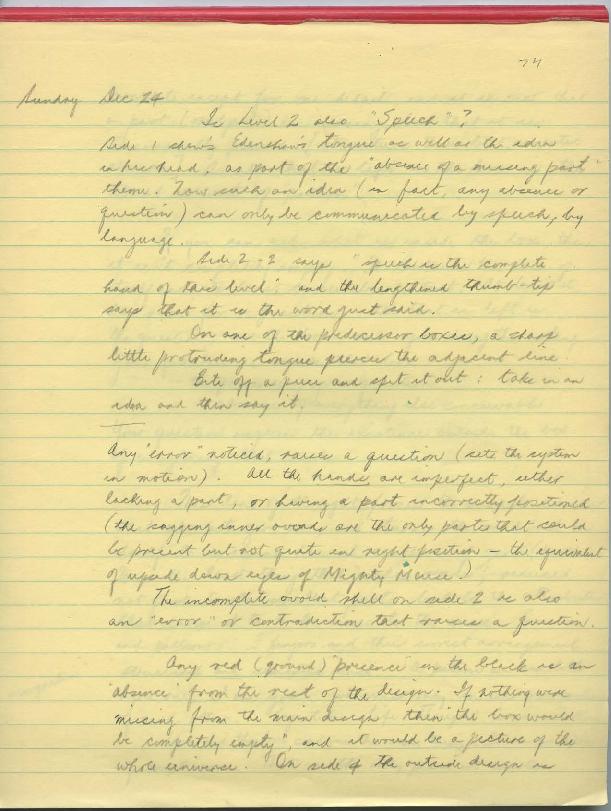 74
Sunday Dec 24
Is Level 2 also "Speech"?
Side 1 shows Edenshaw's tongue as well as the idea
in his head, as part of the "absence of a missing part"
theme. Now such an idea (in fact, any absence or
question) can only be communicated by speech, by
language.
Side 2-2 says "speech is the complete
hand of this level" and the lengthened thumb-tip
says that it is the word just said.
On one of the predecessor boxes, a sharp
little protruding tongue pierces the adjacent line.
Bite off a piece and spit it out: take in an
idea and then say it.
Any "error" noticed, raises a question (sets the system
in motion). All the hands are imperfect, either
lacking a part, or having a part incorrectly positioned
(the sagging inner ovoids are the only parts that could
be present but not quite in right position – the equivalent
of upside down eyes of Mighty Mouse.)
The incomplete ovoid shell on side 2 is also
an "error" or contradiction that raises a question.
Any red (ground) "presence" in the black is an
"absence" from the rest of the design. If nothing were
missing from the main design then "the box would
be completely empty", and it would be a picture of the
whole universe. On side 4 the outside design is